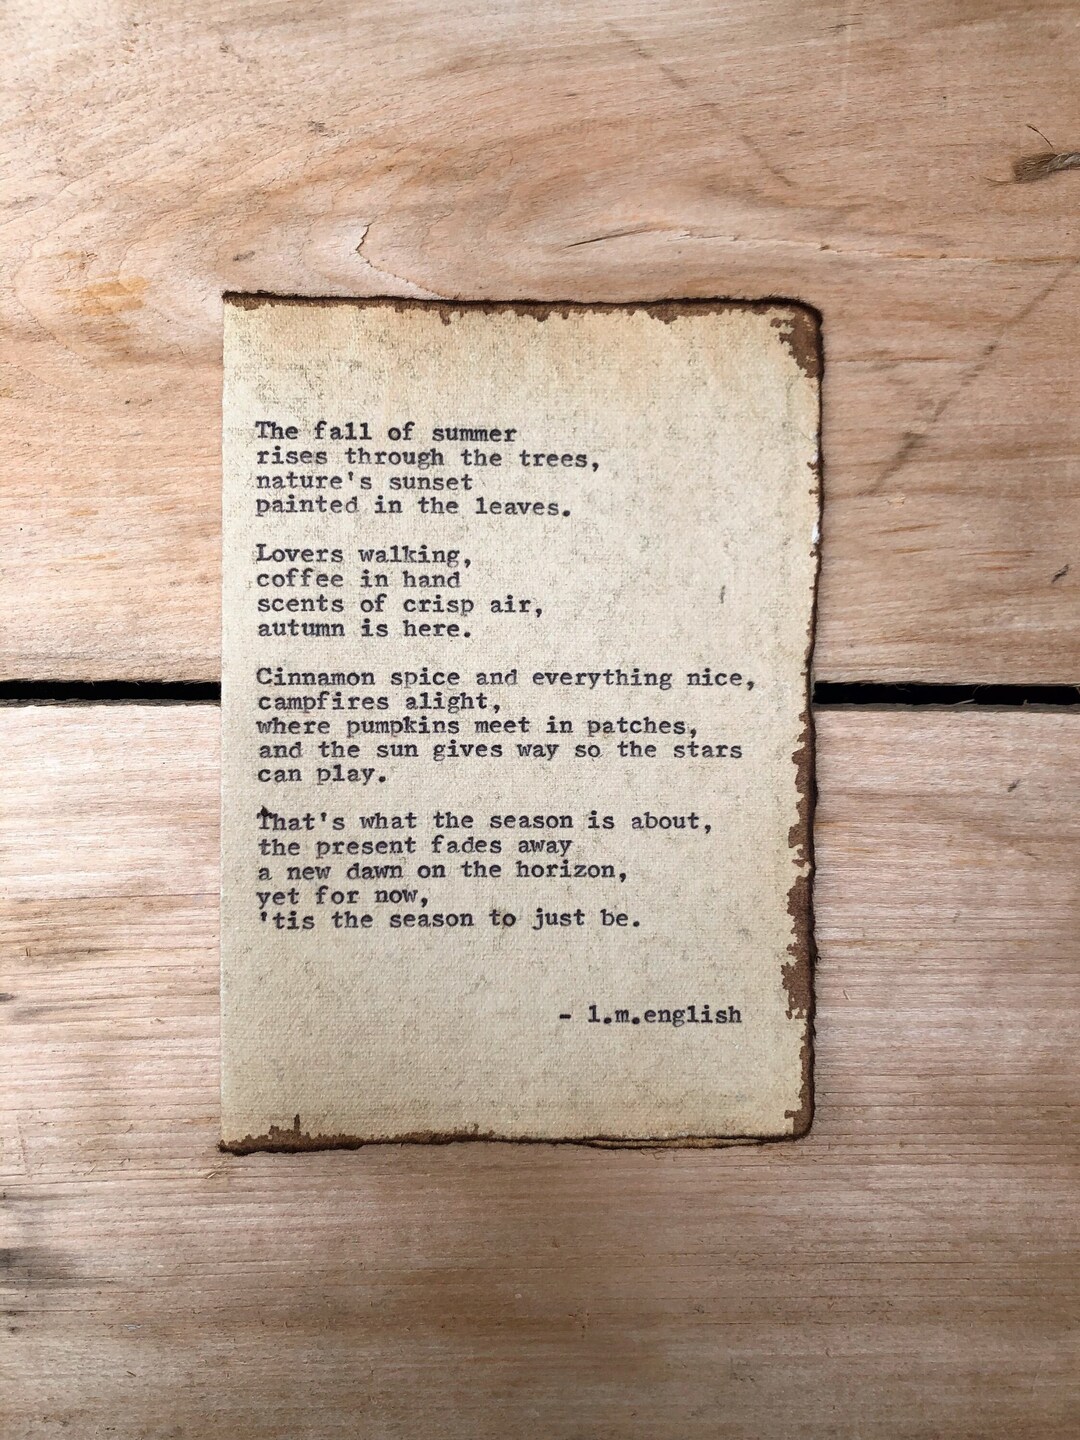 The fall of summer
rises through the trees,
nature's sunset
painted in the leaves.
Lovers walking,
coffee in hand
scents of crisp air,
autumn is here.
Cinnamon spice and everything nice,
campfires alight,
where pumpkins meet in patches,
and the sun gives way so the stars
can play.
That's what the season is about,
the present fades away
a new dawn on the horizon,
yet for now,
'tis the season to just be.
- l.m.english